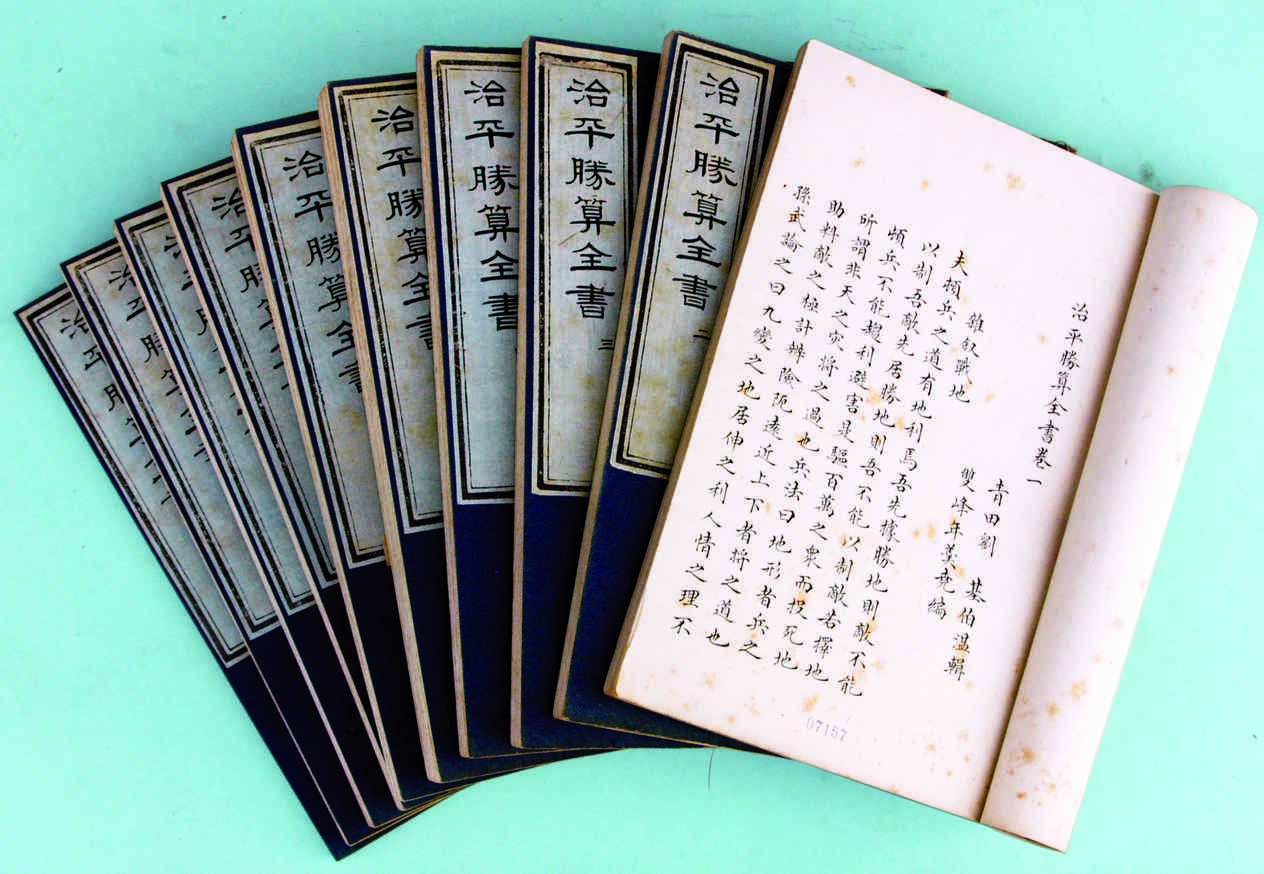 治平勝算全書卷一
青田劉 基伯溫輯
雙峰年羹堯編
雜叙戰地
夫頓兵之道有地利焉吾先據勝地則敵不能
以制吾敵先居勝地則吾不能以制敵若擇地
頓兵不能趨利避害是驅百萬之衆而投死地
所謂非天之灾將之過也兵法曰地形者兵之
助料敵之極計辨險阨遠近上下者將之道也
孫武論之曰九變之地居伸之利人情之理不
07157
治平勝算全書 二
治平勝算全書 三
治平勝算全書
治平勝算全書
治平勝算全書
治平
治
治平勝
治平勝